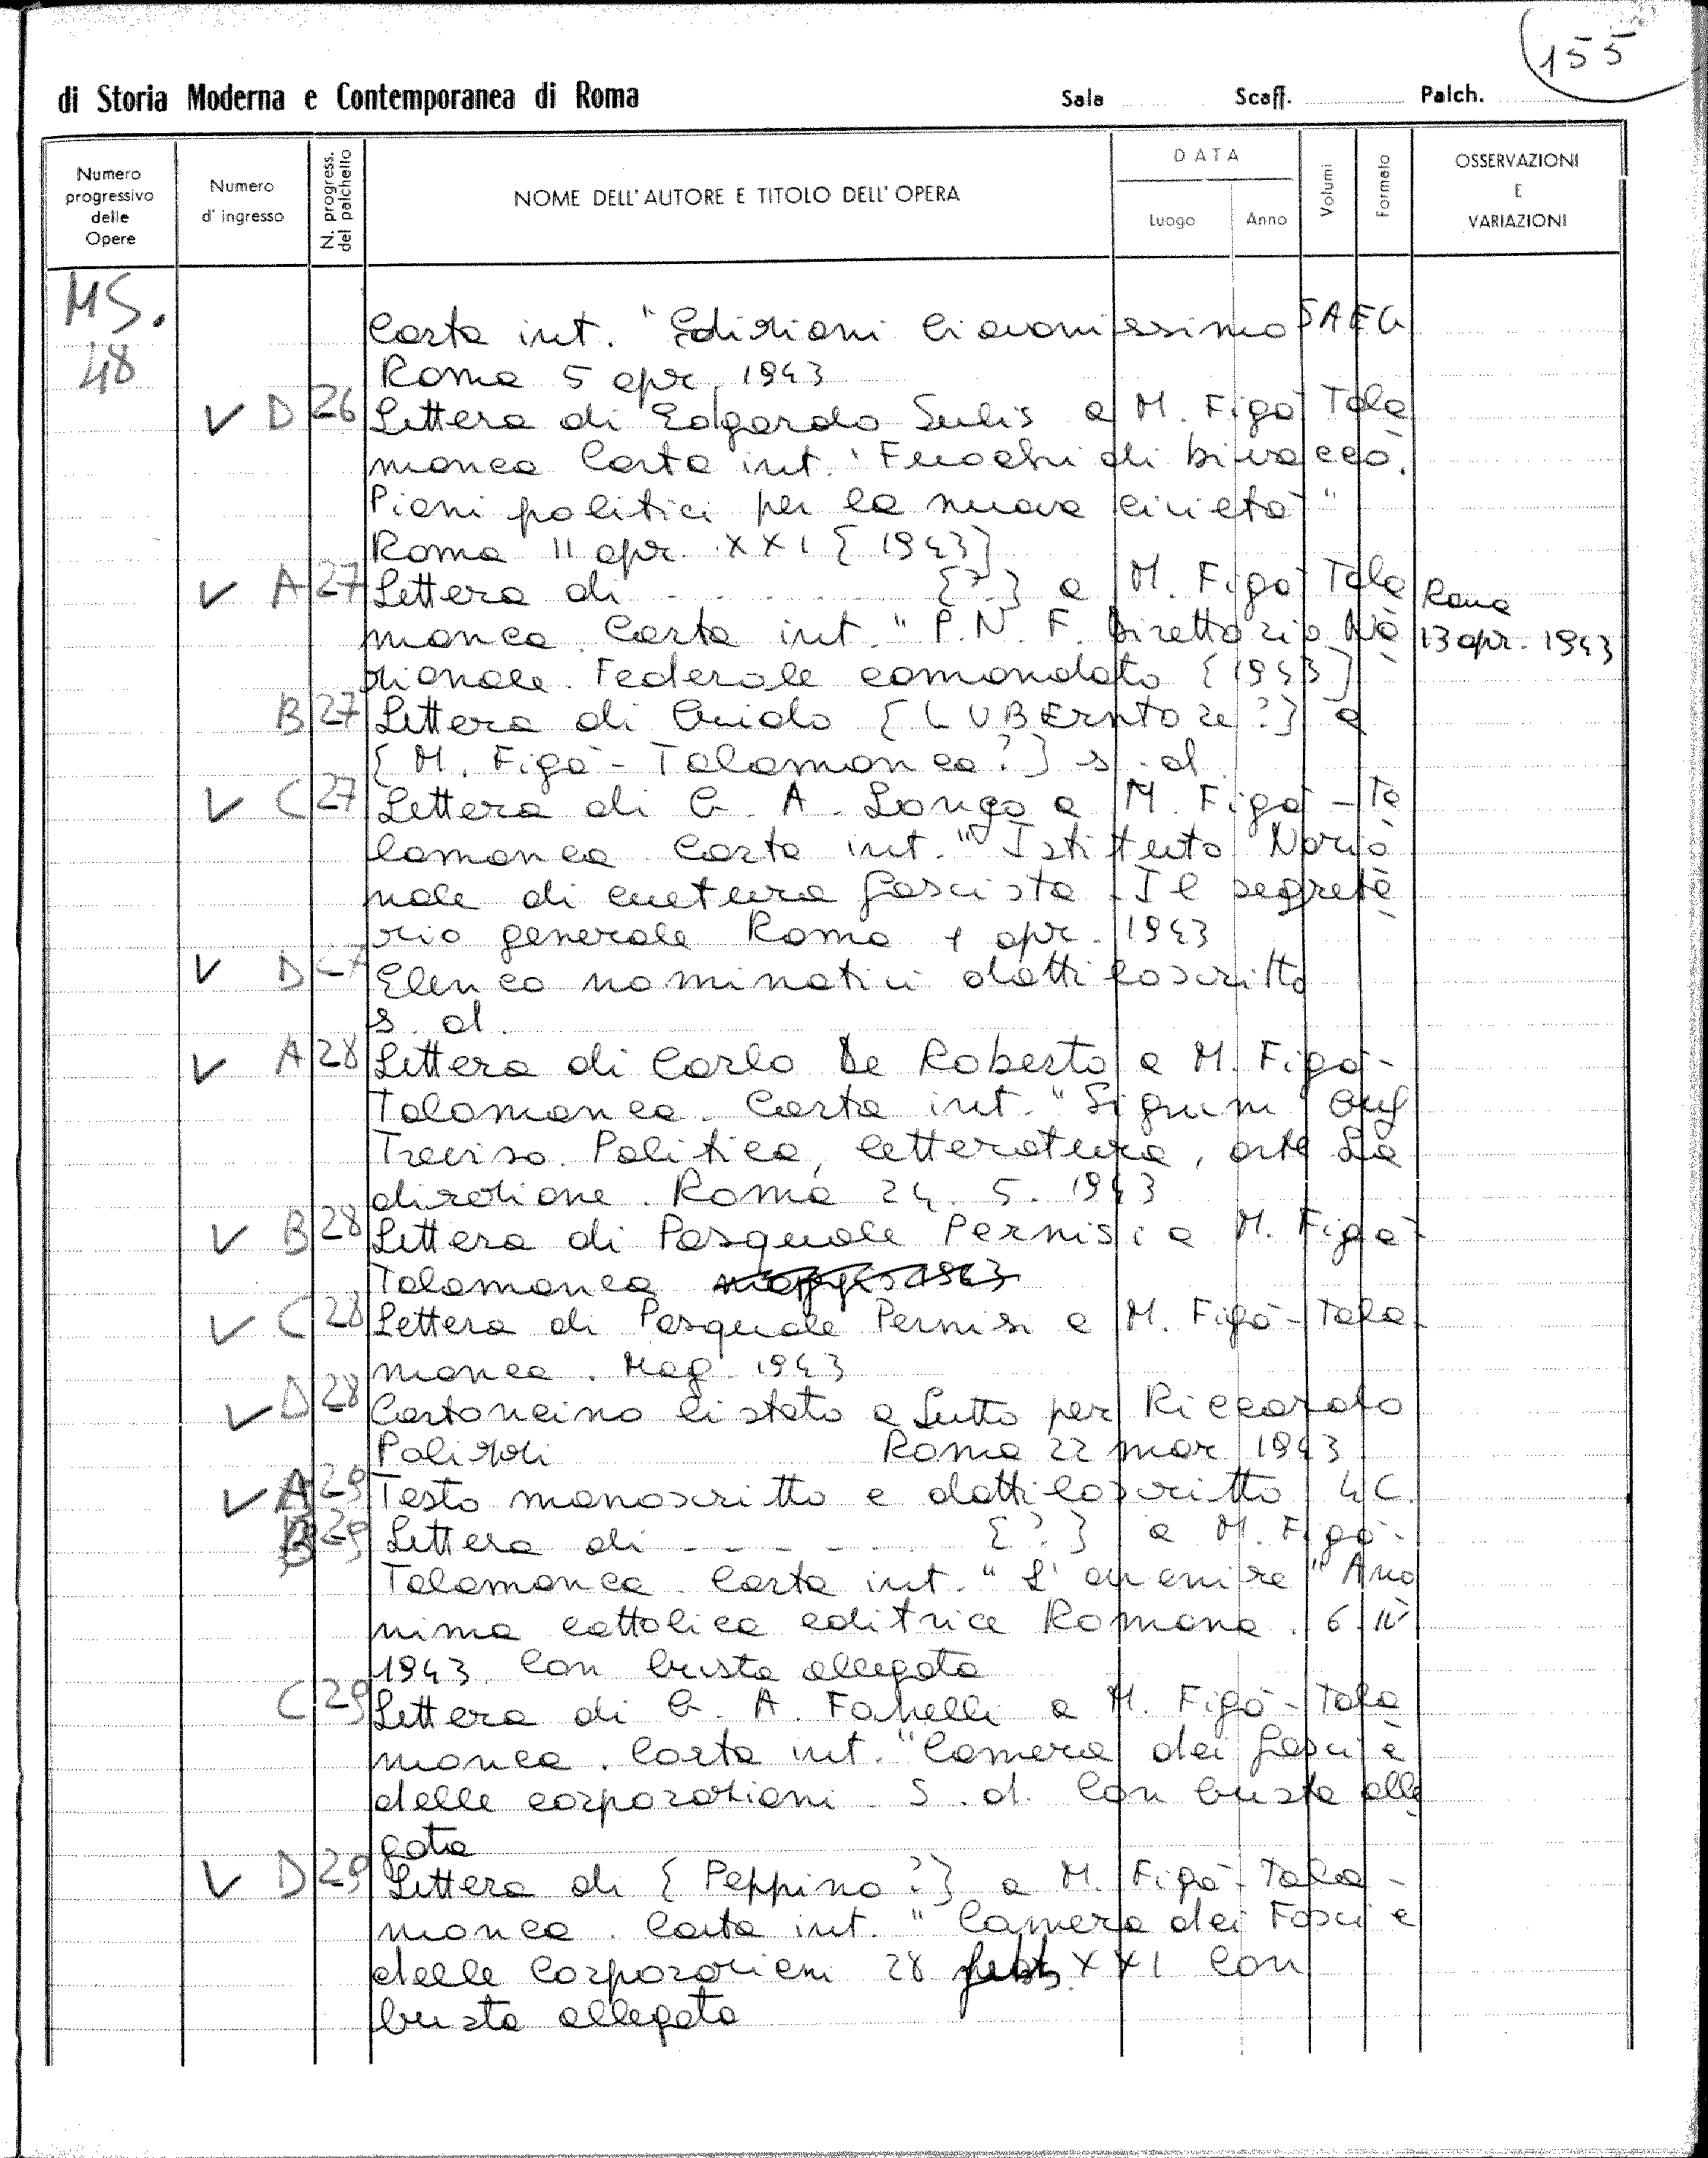 155
di Storia Moderna e Contemporanea di Roma Sala Scaff. Palch.
Numero progressivo delle Opere
Numero d'ingresso
N. progress. del palchetto
NOME DELL'AUTORE E TITOLO DELL'OPERA
DATA
Luogo
Anno
Volumi
Formato
OSSERVAZIONI E VARIAZIONI
MS. 48
Carta int. "Edizioni Giovanissimo SAEG
Roma 5 apr. 1943
V D 26 Lettera di Edgardo Sulis a M. Figà Tala
monca Carta int. "Fuochi di bivacco.
Piani politici per la nuova civiltà"
Roma 11 apr. XXI [1943]
V A 27 Lettera di . . . . . [?] a M. Figà Tala
monca. Carta int. "P.N.F. Direttorio Na
zionale. Federale comandato [1943]
Roma
13 apr. 1943
B 27 Lettera di Guido [LUBErntoze?] a
[M. Figà-Talamonca?] s.d.
V C 27 Lettera di G. A. Longo a M. Figà-Ta
lamonca Carta int. "Istituto Nazio
nale di cultura fascista. Il segreta
rio generale Roma 1 apr. 1943
V D 27 Elenco nominativi dattiloscritto
s.d.
V A 28 Lettera di Carlo De Roberto a M. Figà-
Talamonca. Carta int. "Signum" Guf
Treviso. Politica, letteratura, arte La
direzione. Roma 24. 5. 1943
V B 28 Lettera di Pasquale Pernisi a M. Figà-
Talamonca
V C 28 Lettera di Pasquale Pernisi a M. Figà-Tala
monca. Mag. 1943
V D 28 Cartoncino listato a lutto per Riccardo
Polizzi Roma 22 mar 1943
V A 29 Testo manoscritto e dattiloscritto 4 C.
B 29 Lettera di - - - - [?] a M. Figà-
Talamonca. Carta int. "L'avvenire" Ano
nima cattolica editrice Romana. 6 IV
1943. Con busta allegata
C 29 Lettera di G. A. Fanelli a M. Figà-Tala
monca. Carta int. "Camera dei fasci e
delle corporazioni. S.d. Con busta alle
gata
V D 29 Lettera di [Peppino?] a M. Figà-Tala-
monca. Carta int. "Camera dei Fasci e
delle Corporazioni 28 XXI Con
busta allegata